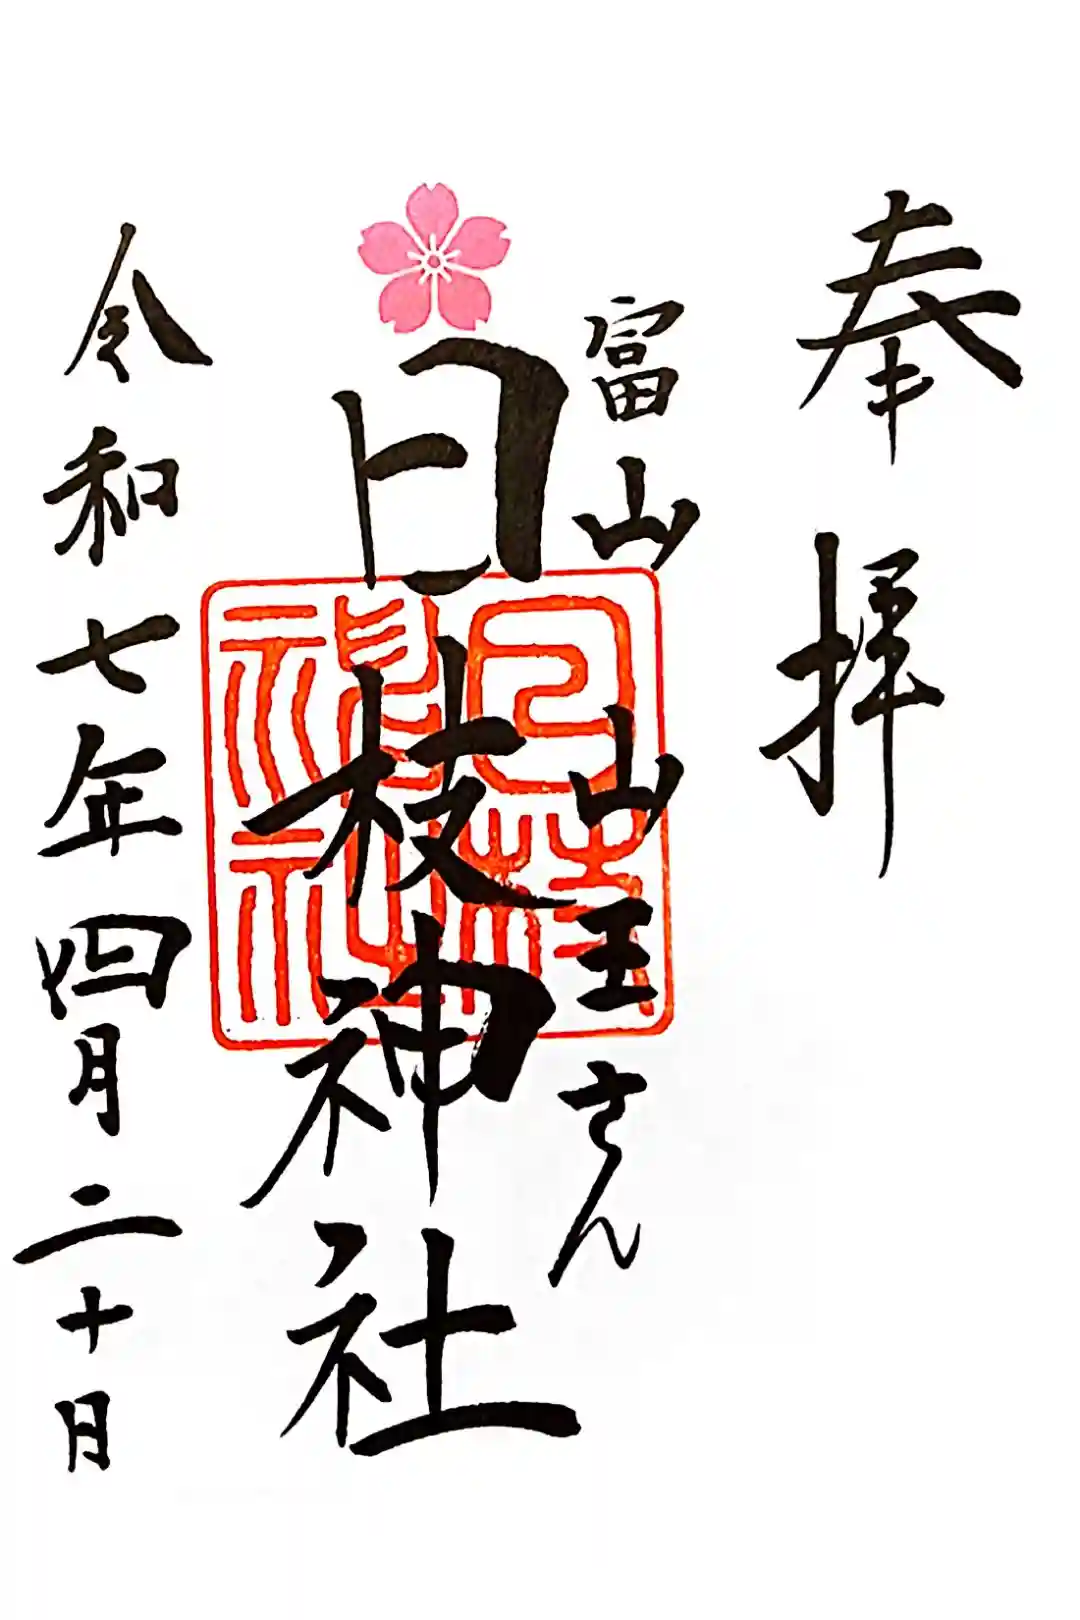 奉拝
富山山王さん
日枝神社
日枝神社
令和七年四月二十日